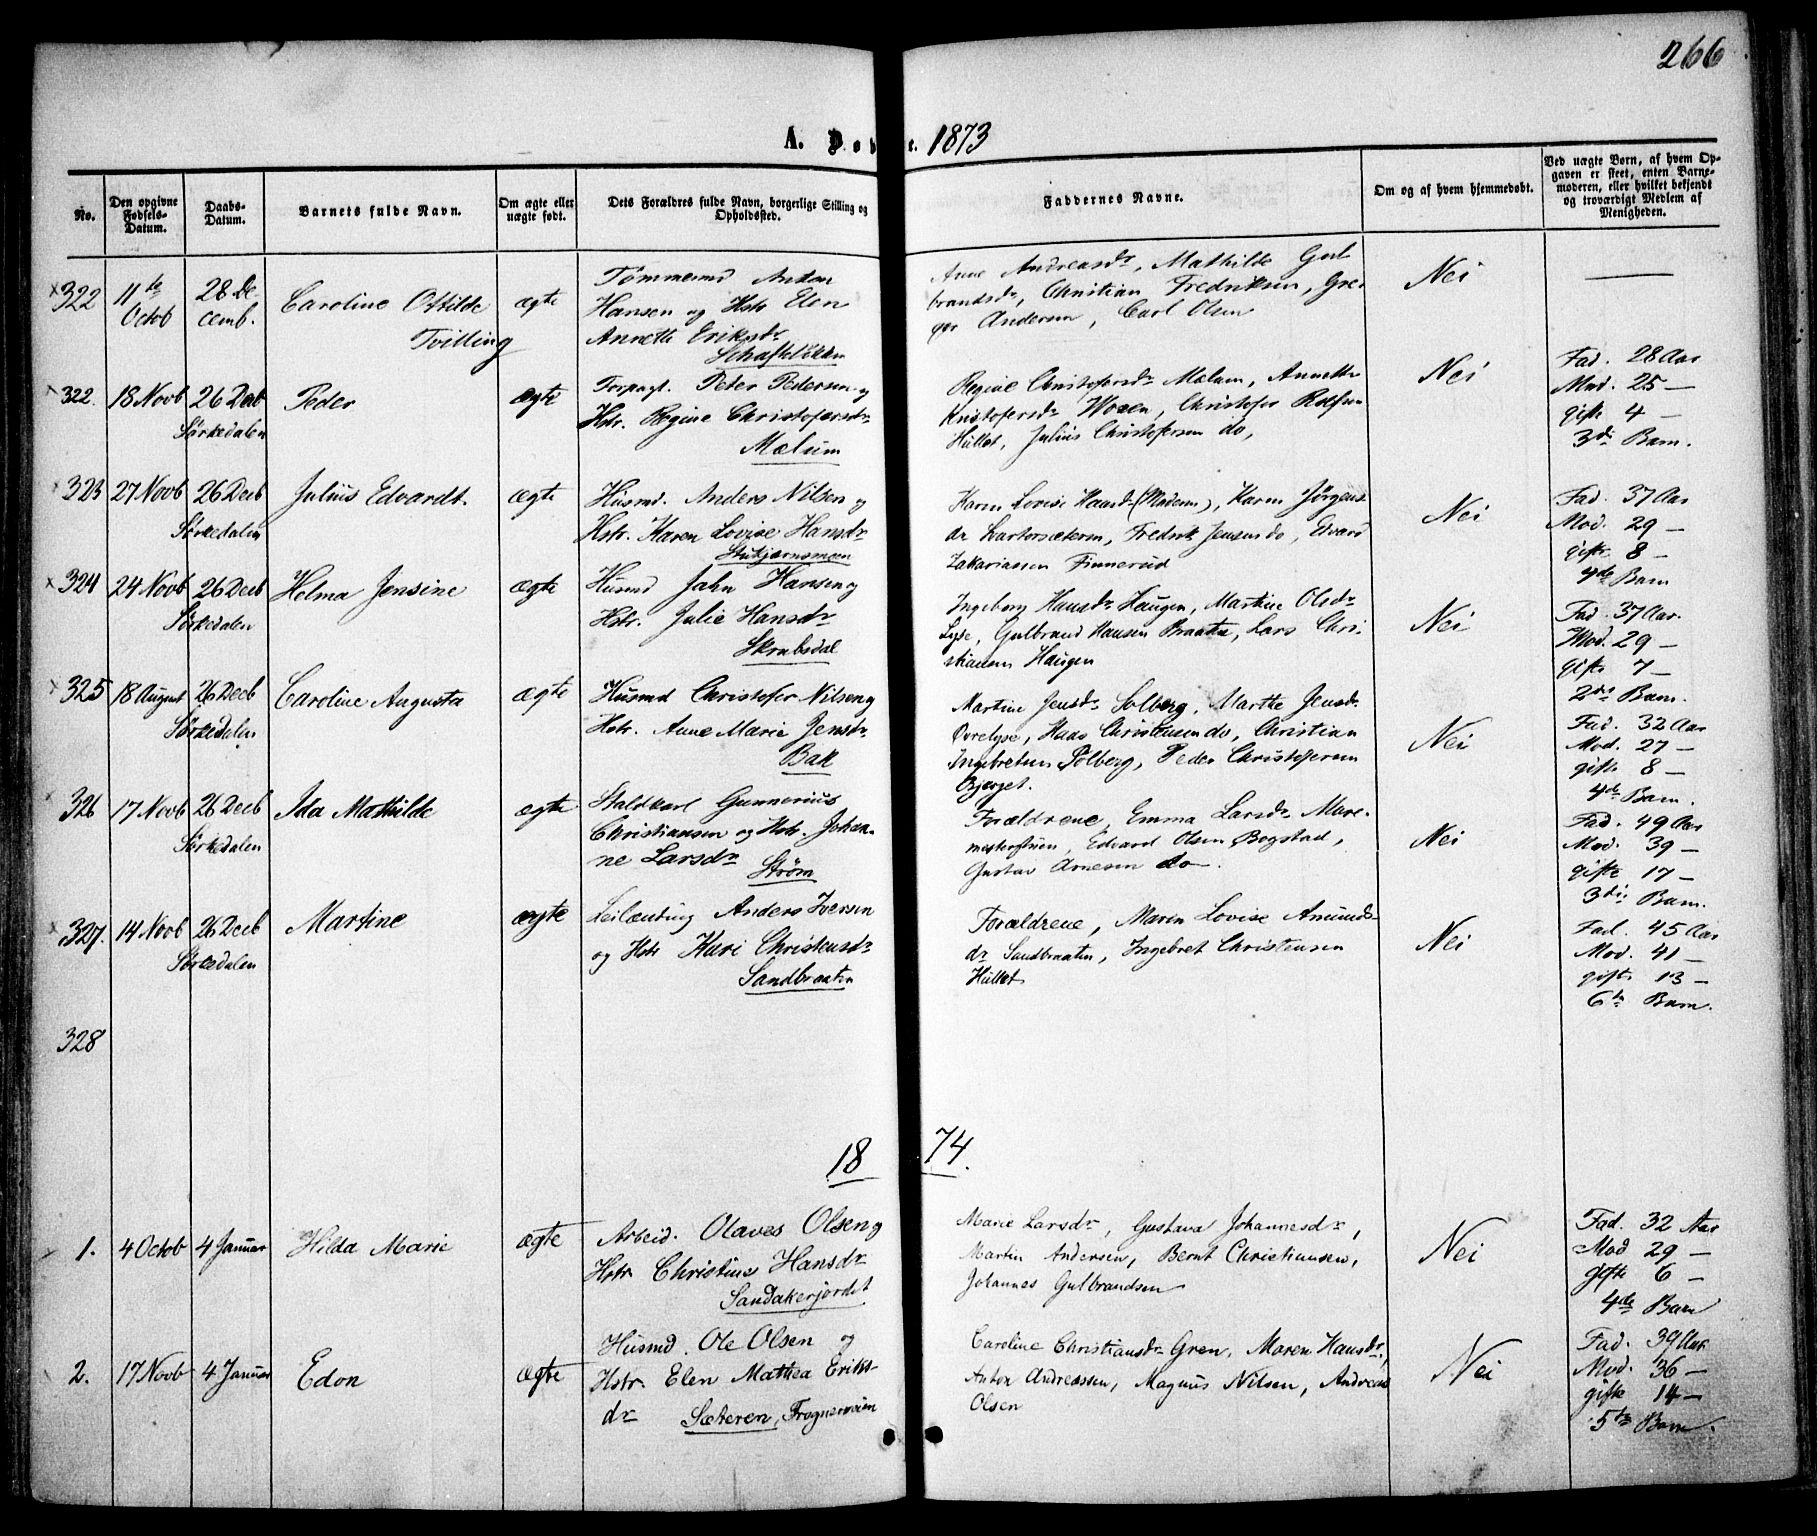 266
A. Døbte. 1873
No.
Den opgivne Fødsels-Datum.
Daabs-Datum.
Barnets fulde Navn.
Om ægte eller uægte født.
Dets Forældres fulde Navn, borgerlige Stilling og Opholdssted.
Faddernes Navne.
Om og af hvem hjemmedøbt.
Ved uægte Børn, af hvem Opgaven er skeet, enten Barnemoderen, eller hvilket bekjendt og troværdigt Medlem af Menigheden.
322
11te Octob
28 December.
Caroline Ottilde
Tvilling
ægte
Tømmermd Anton
Hansen og Hstr Elen
Annette Eriksdr
Anne Andreasdr, Mathilde Gul
brandsdr, Christian Fredriksen, Gre
ger Andersen, Carl Olsen
Nei
322.
18 Novb
26 Decb
Sørkedalen
Peder
ægte
Forpagt. Peter Pedersen og
Hstr. Regine Christofersdr
Mælum
Regine Christofersdr Mælum, Annette
Kristofersdr Woxen, Christofer Rolfsen
Hullet, Julius Christofersen do,
Nei
Fad. 28 Aar
Mod. 25 —
gifte 4 —
3die Barn.
323
27 Novb
26 Decb
Sørkedalen
Julius Edvardt.
ægte
Husmd. Anders Nilsen og
Hstr. Karen Lovise Hansdr
Karen Lovise Haasdr (Moderen), Karen Jørgens
dr Svartorsæteren, Fredrik Jensen do, Edvard
Zakariassen Finnerud
Nei
Fad. 37 Aar
Mod. 29 —
gifte 8 —
4de Barn
324
24 Novb
26 Decb
Sørkedalen
Helma Jensine
ægte
Husmd John Hansen og
Hstr. Julie Hansdr
Skrubsdal
Ingeborg Hansdr Haugen, Martine Olsdr
Lyse, Gulbrand Hansen Braaten, Lars Chri-
stiansen Haugen
Nei
Fad. 37 Aar.
Mod. 29 —
gifte 7 —
2det Barn.
325
18 August
26 Decb
Sørkedalen
Caroline Augusta
ægte
Husmd Christofer Nilsen og
Hstr. Anne Marie Jensdr
Bak
Martine Jensdr Solberg, Marthe Jensdr
Øvrelyse, Haas Christensen do, Christian
Ingebretsen Solberg, Peder Christofersen
Bjerget.
Nei
Fad. 32 Aar
Mod. 27 —
gifte 8 —
4de Barn.
326
17 Novb
26 Decb
Sørkedalen
Ida Mathilde
ægte
Staldkarl Gunnerius
Christiansen og Hstr. Johan-
ne Larsdr
Strøm
Forældrene, Emma Larsdr Mure-
mesterstuen, Edvard Olsen Bogstad,
Gustav Arnesen do.
Nei
Fad. 49 Aar
Mod. 39 —
gifte 17 —
3die Barn.
327.
14 Novb
26 Decb
Sørkedalen
Martine
ægte
Leilænding Anders Iversen
og Hstr Kari Christensdr
Sandbraaten
Forældrene, Maren Lovise Amunds-
dr Sandbraaten, Ingebret Christensen
Hullet
Nei
Fad. 45 Aar
Mod. 41 —
gifte 13 —
6te Barn.
328
1874.
1.
4 Octob
4 Januar
Hilda Marie
ægte
Arbeid. Olaves Olsen og
Hstr Christine Hansdr
Sandakerjordet
Marie Larsdr, Gustava Johannesdr,
Martin Andersen, Bernt Christiansen,
Johannes Gulbrandsen
Nei
Fad. 32 Aar
Mod 29 —
gifte 6 —
4de Barn
2.
17 Novb
4 Januar
Edon
ægte
Husmd. Ole Olsen og
Hstr. Elen Mathea Eriks-
dr Sæteren, Frognerveien
Caroline Christiansdr Gren, Maren Hansdr,
Anton Andreassen, Magnus Nilsen, Andreas
Olsen
Nei
Fad. 39 Aar
Mod. 36 —
gifte 14 —
5te Barn.